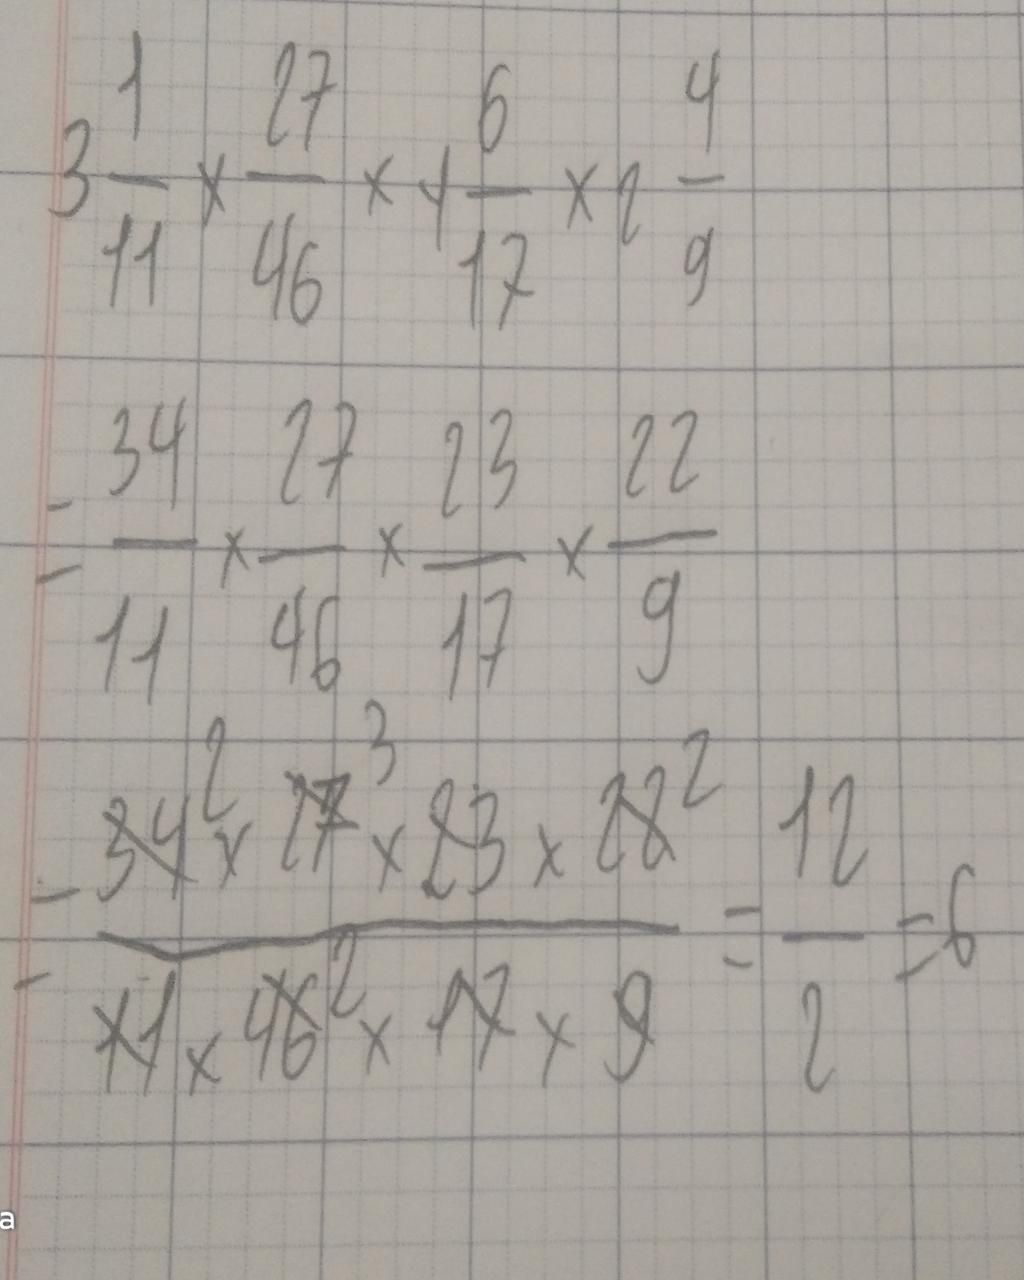 3 1/11 x 27/46 x 1 6/17 x 2 4/9
= 34/11 x 27/46 x 23/17 x 22/9
= 34² x 27³ x 23 x 22² / 11 x 46² x 17 x 9 = 12/2 = 6
a